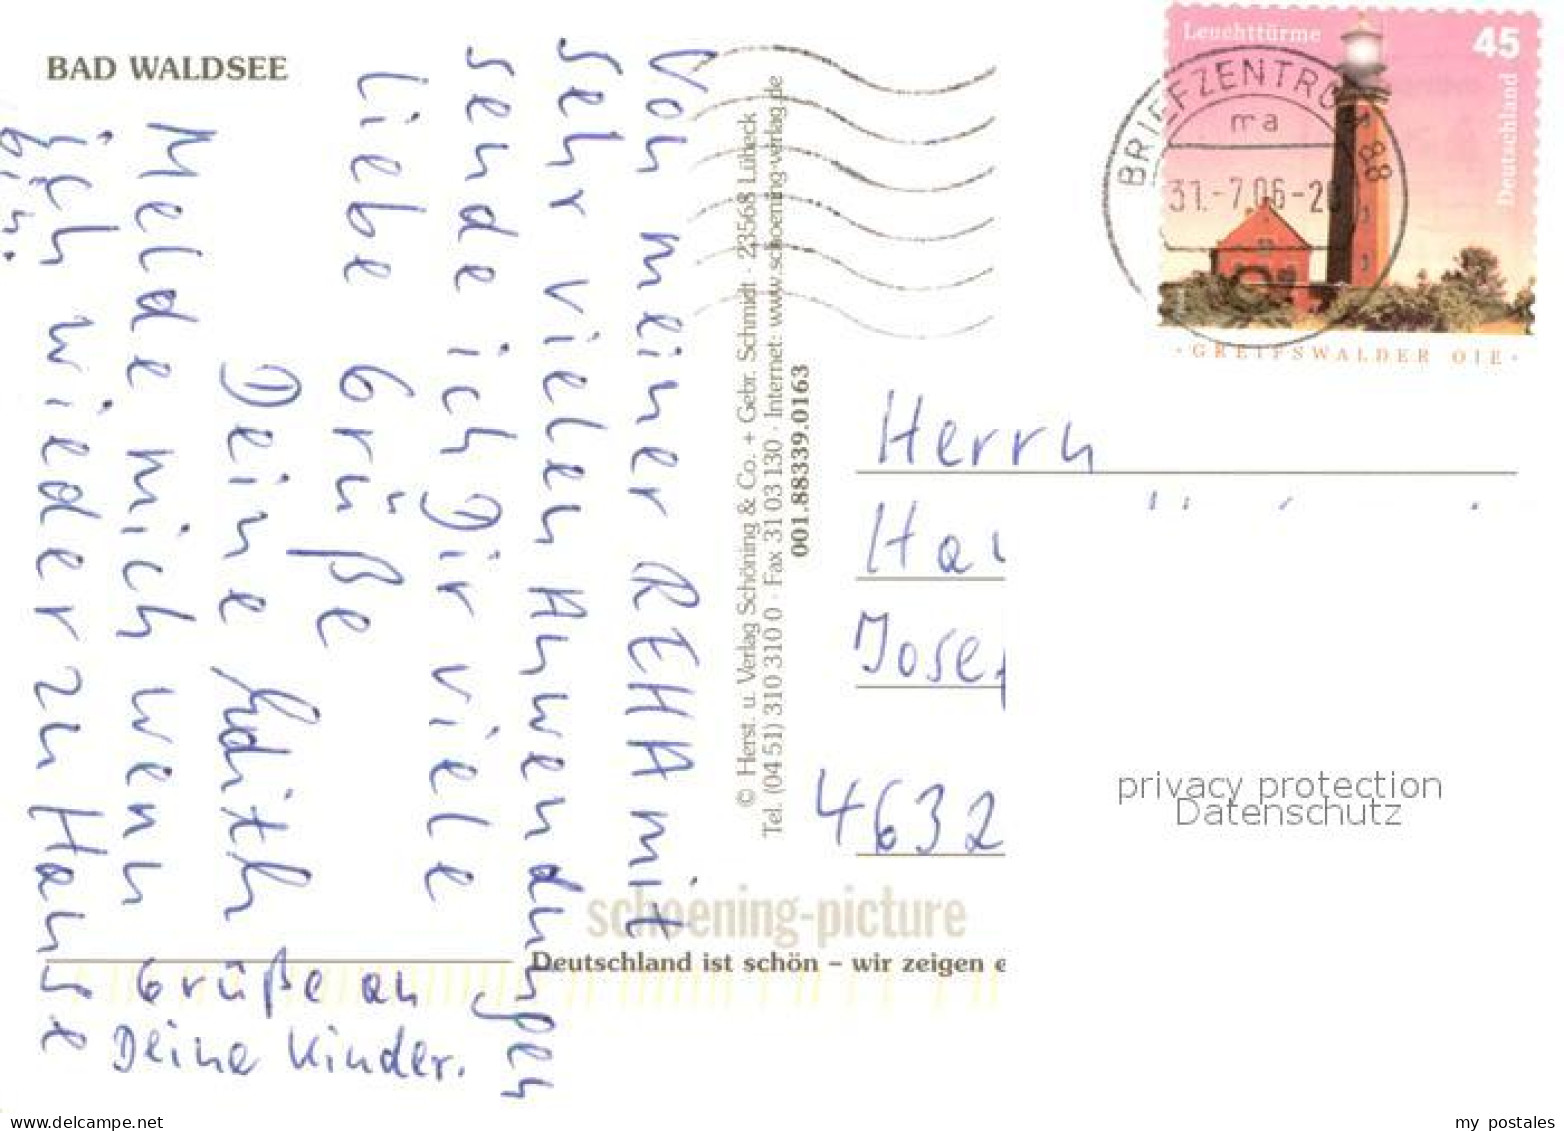 BAD WALDSEE
Von meiner REHA mit
sehr vielen Anwendungen
sende ich Dir viele
liebe Grüße
Deine Edith
Melde mich wenn
ich wieder zu Hause
bin.
Grüße an
Deine Kinder.
© Herst. u. Verlag Schöning & Co. + Gebr. Schmidt · 23568 Lübeck
Tel. (04 51) 310 310 0 · Fax 31 03 130 · Internet: www.schoening-verlag.de
001.88339.0163
schoening-picture
Deutschland ist schön – wir zeigen e
Leuchttürme
45
Deutschland
GREIFSWALDER OIE
BRIEFZENTRUM 88
ma
31.-7.06-20
Herrn
Josef
4632
privacy protection
Datenschutz
www.delcampe.net
my_postales